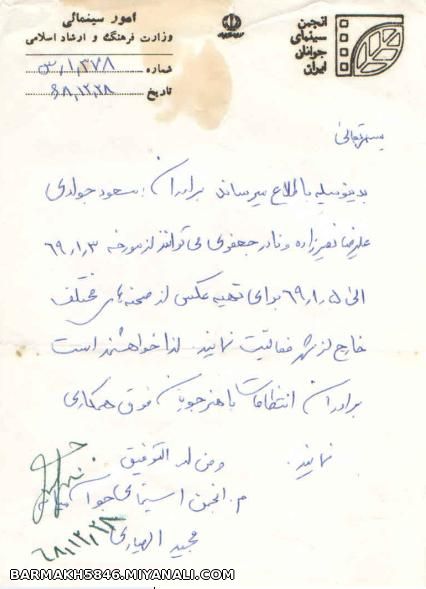 انجمن
سینمای
جوانان
ایران
امور سینمائی
وزارت فرهنگ و ارشاد اسلامی
شماره س/۱/۳۷۸
تاریخ ۶۸/۱۲/۲۸
بسمه تعالی
بدینوسیله باطلاع میرساند برادران: مسعود جوادی
علیرضا نصیرزاده و نادر جعفری می توانند از مورخه ۶۹/۱/۳
الی ۶۹/۱/۵ برای تهیه عکس از صحنه های مختلف
خارج از شهر فعالیت نمایند. لذا خواهشمند است
برادران انتظامات با هنرجویان فوق همکاری
نمایند.
و من الله التوفیق
م. انجمن سینمای جوانان
مجید
۶۸/۱۲/۲۸
BARMAKH5846.MIYANALI.COM